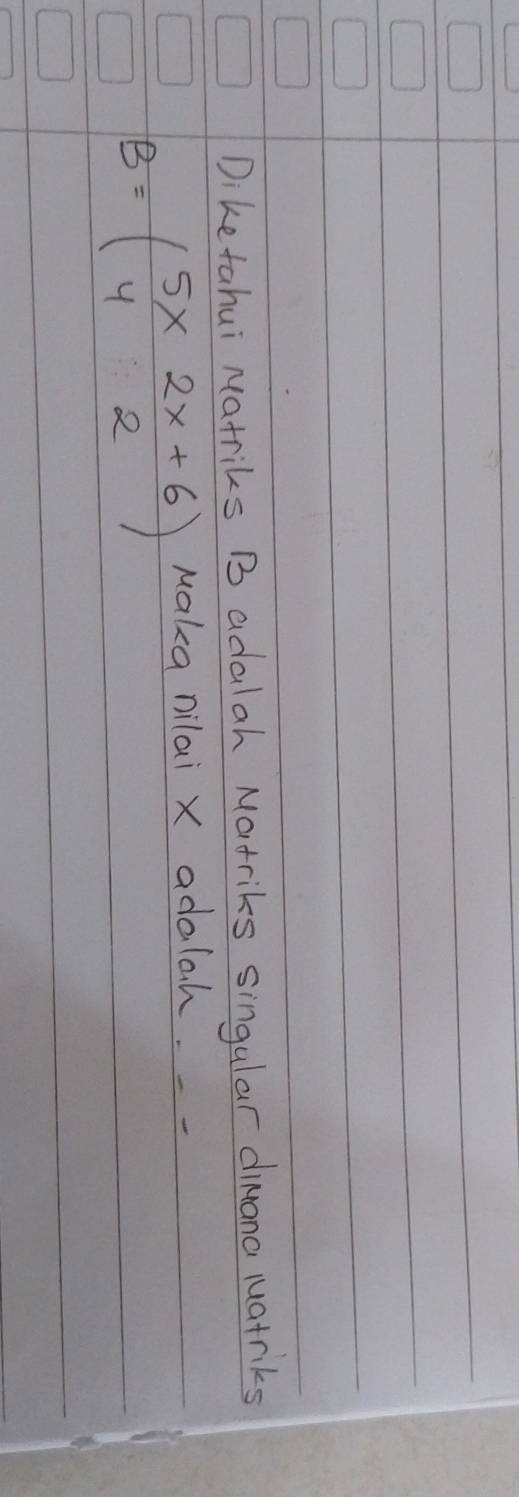 Diketahui Matriks B adalah Matriks singular dimana Matriks
B = ( 5x 2x + 6 ) Maka nilai x adalah. - -
( 4 2 )